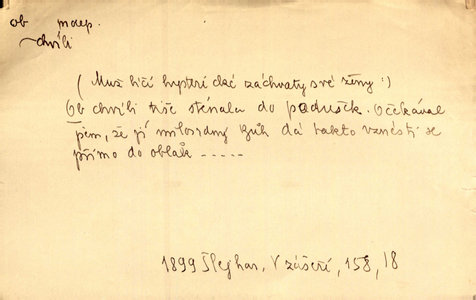 ob předp.
chvíli
(Muž líčí hysterické záchvaty své ženy:)
Ob chvíli tiše sténala do podušek. Očekával
jsem, že jí milosrdný Bůh dá takto vznésti se
přímo do oblak -----
1899 Šlejhar, V zášeří, 158, 18